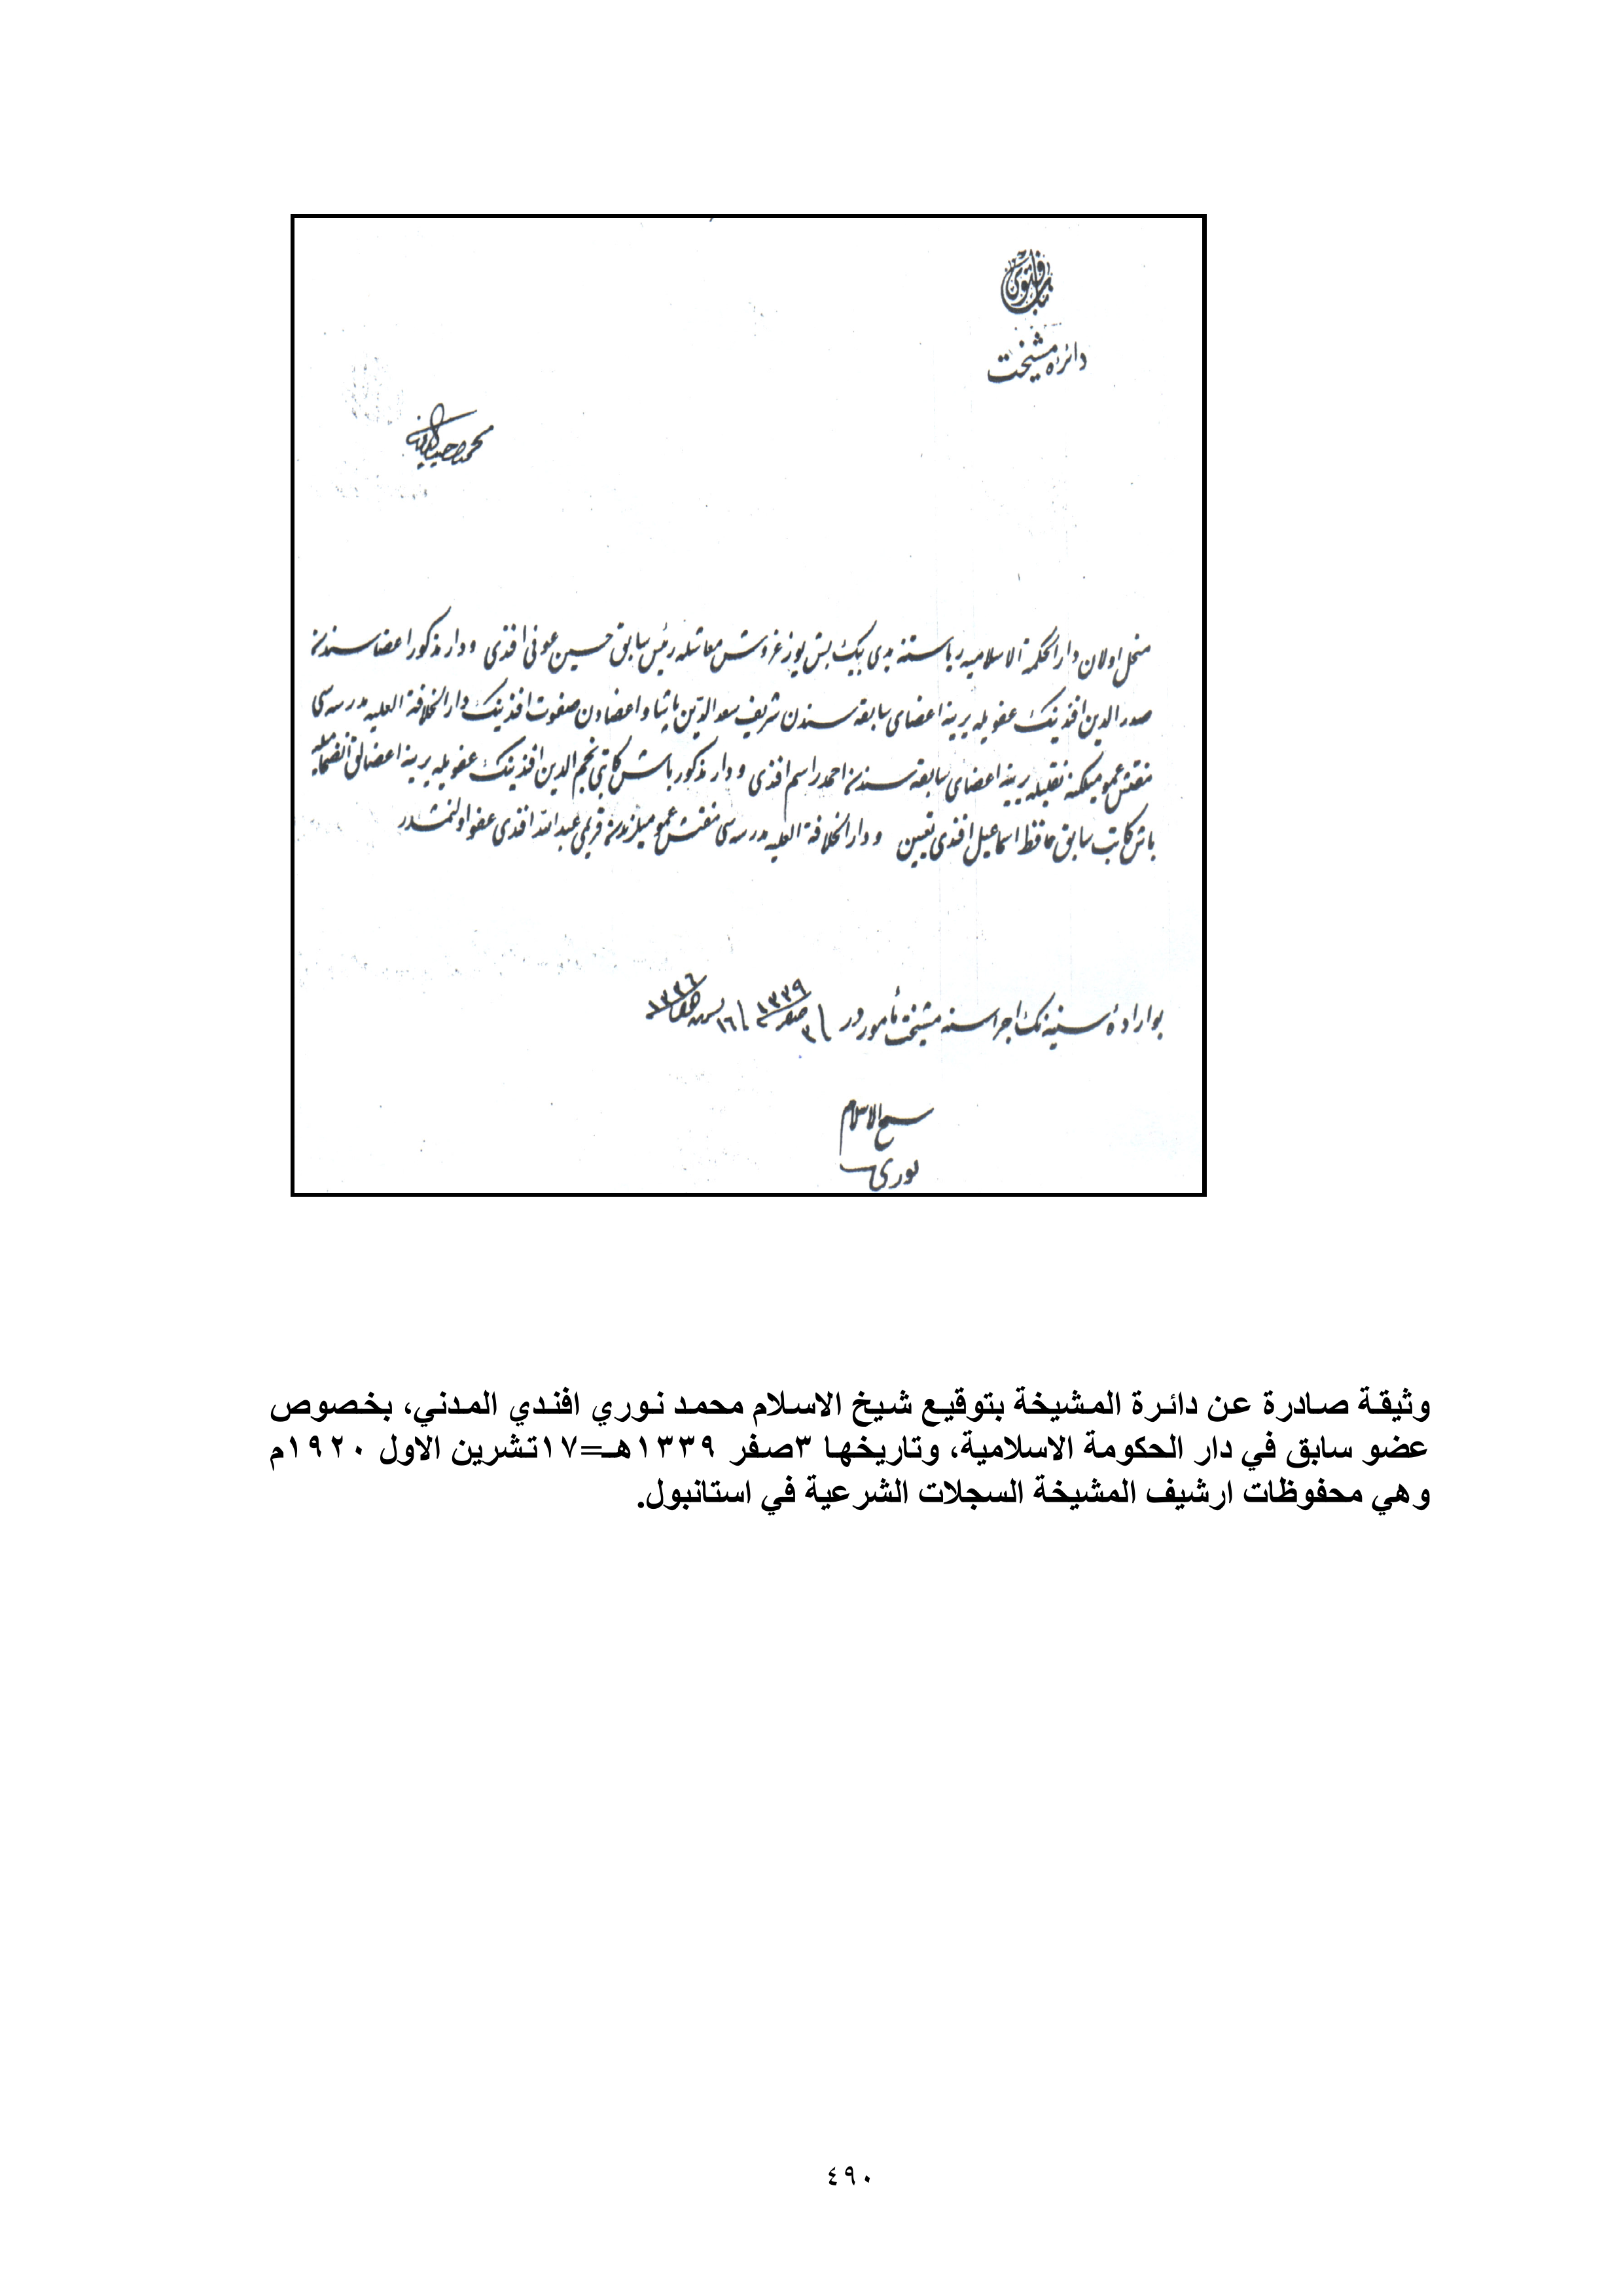 باب فتوى
دائرۀ مشيخت
محمد وحيد الدين
منحل اولان دار الحكمة الاسلاميه رياستنه يدى بيك بش يوز غروش معاشله رئيس سابق حسين عونى افندى ودار مذكور اعضاسندن
صدر الدين افندينك عفويله يرينه اعضاى سابقه سندن شريف سعد الدين پاشا و اعضادن صفوت افندينك دار الخلافة العليه مدرسه سى
مفتش عموميلكنه نقليله يرينه اعضاى سابقه سندن احمد راسم افندى ودار مذكور باش كاتبى نجم الدين افندينك عفويله يرينه اعضالق انضماميله
باش كاتب سابق حافظ اسماعيل افندى تعيين ودار الخلافة العليه مدرسه سى مفتش عموميلرندن قريمى عبد الله افندى عفو اولنمشدر
بو ارادۀ سنيه نك اجراسنه مشيخت مأموردر
٣ صفر ١٣٣٩ ١٦ ١٣٣٦
شيخ الاسلام
نورى
وثيقة صادرة عن دائرة المشيخة بتوقيع شيخ الاسلام محمد نوري افندي المدني، بخصوص
عضو سابق في دار الحكومة الاسلامية، وتاريخها ٣صفر ١٣٣٩هـ=١٧تشرين الاول ١٩٢٠م
وهي محفوظات ارشيف المشيخة السجلات الشرعية في استانبول.
٤٩٠